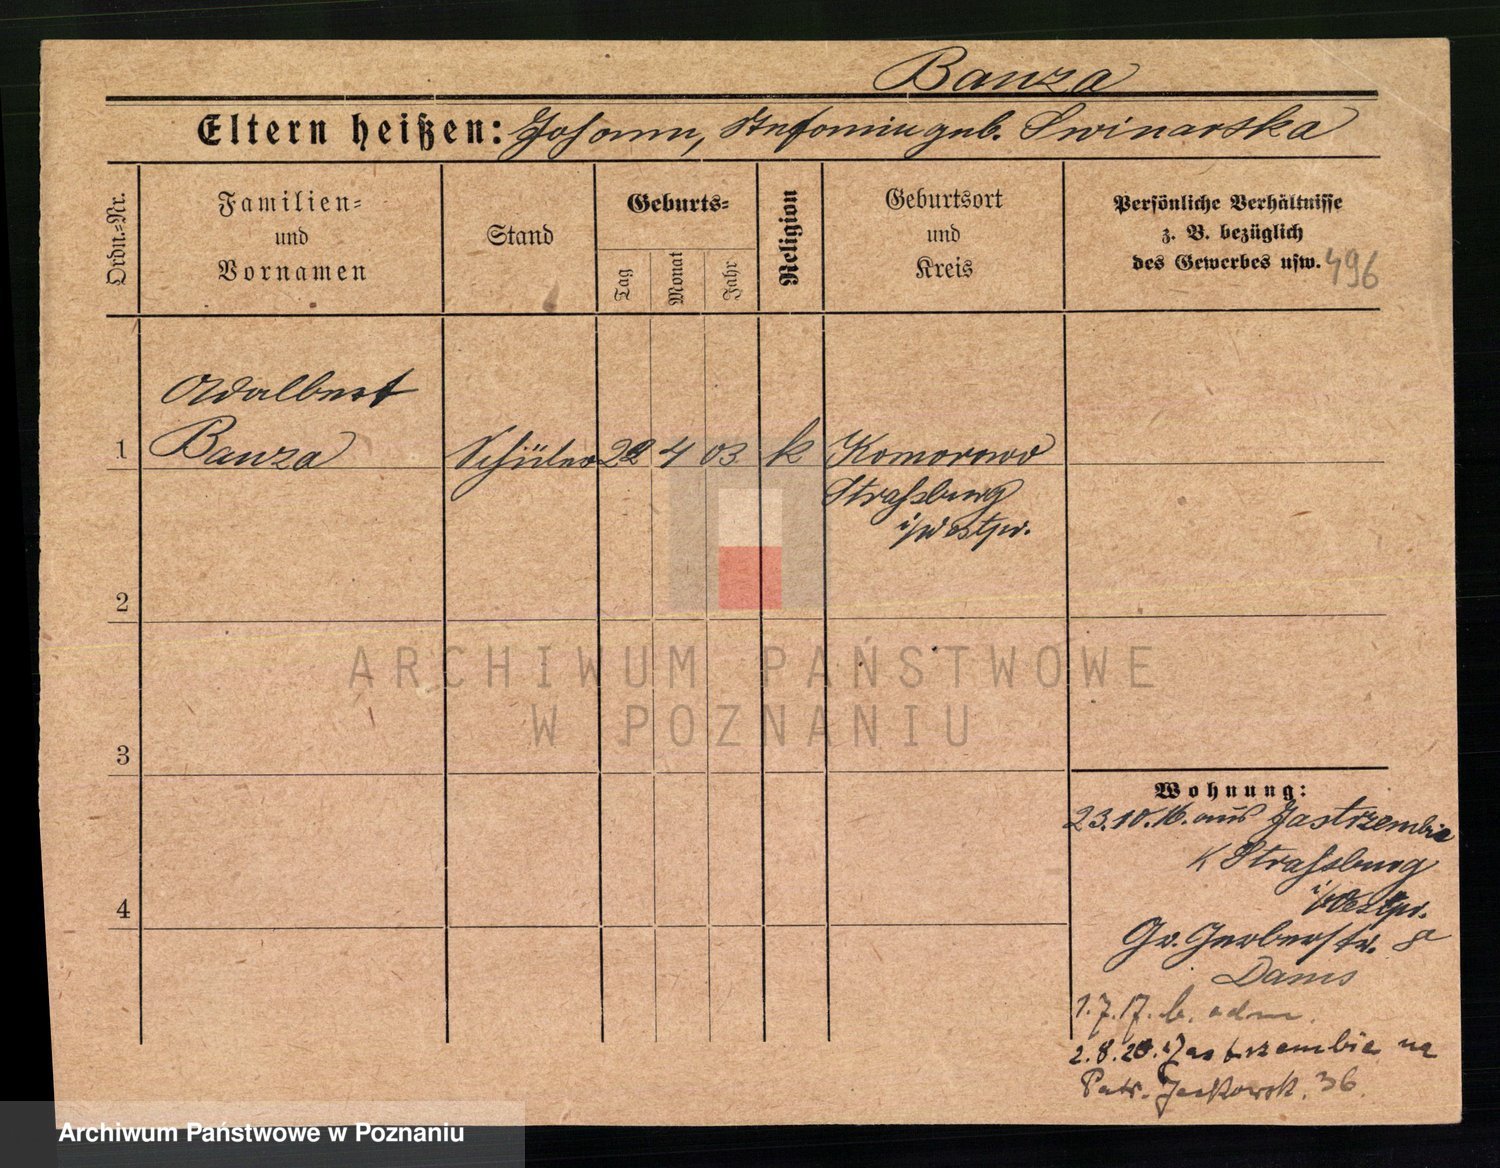 Banza
Eltern heißen: Johann, Stefanie geb. Swinarska
Ordn.=Nr.
Familien=
und
Vornamen
Stand
Geburts=
Tag
Monat
Jahr
Religion
Geburtsort
und
Kreis
Persönliche Verhältnisse
z. B. bezüglich
des Gewerbes usw.
496
Adalbert
1 Banza Schüler 22 4 03 k Komorowo
Straßburg
i/Westpr.
2
3
4
ARCHIWUM PAŃSTWOWE
W POZNANIU
Wohnung:
23.10.16. aus Jastrzembie
K Straßburg
i/Westpr.
Gr. Gerberstr. 8a
Dams
1.7.17. b.
2.8.20. Jastrzembie na
Patr. Jackowsk. 36.
Archiwum Państwowe w Poznaniu